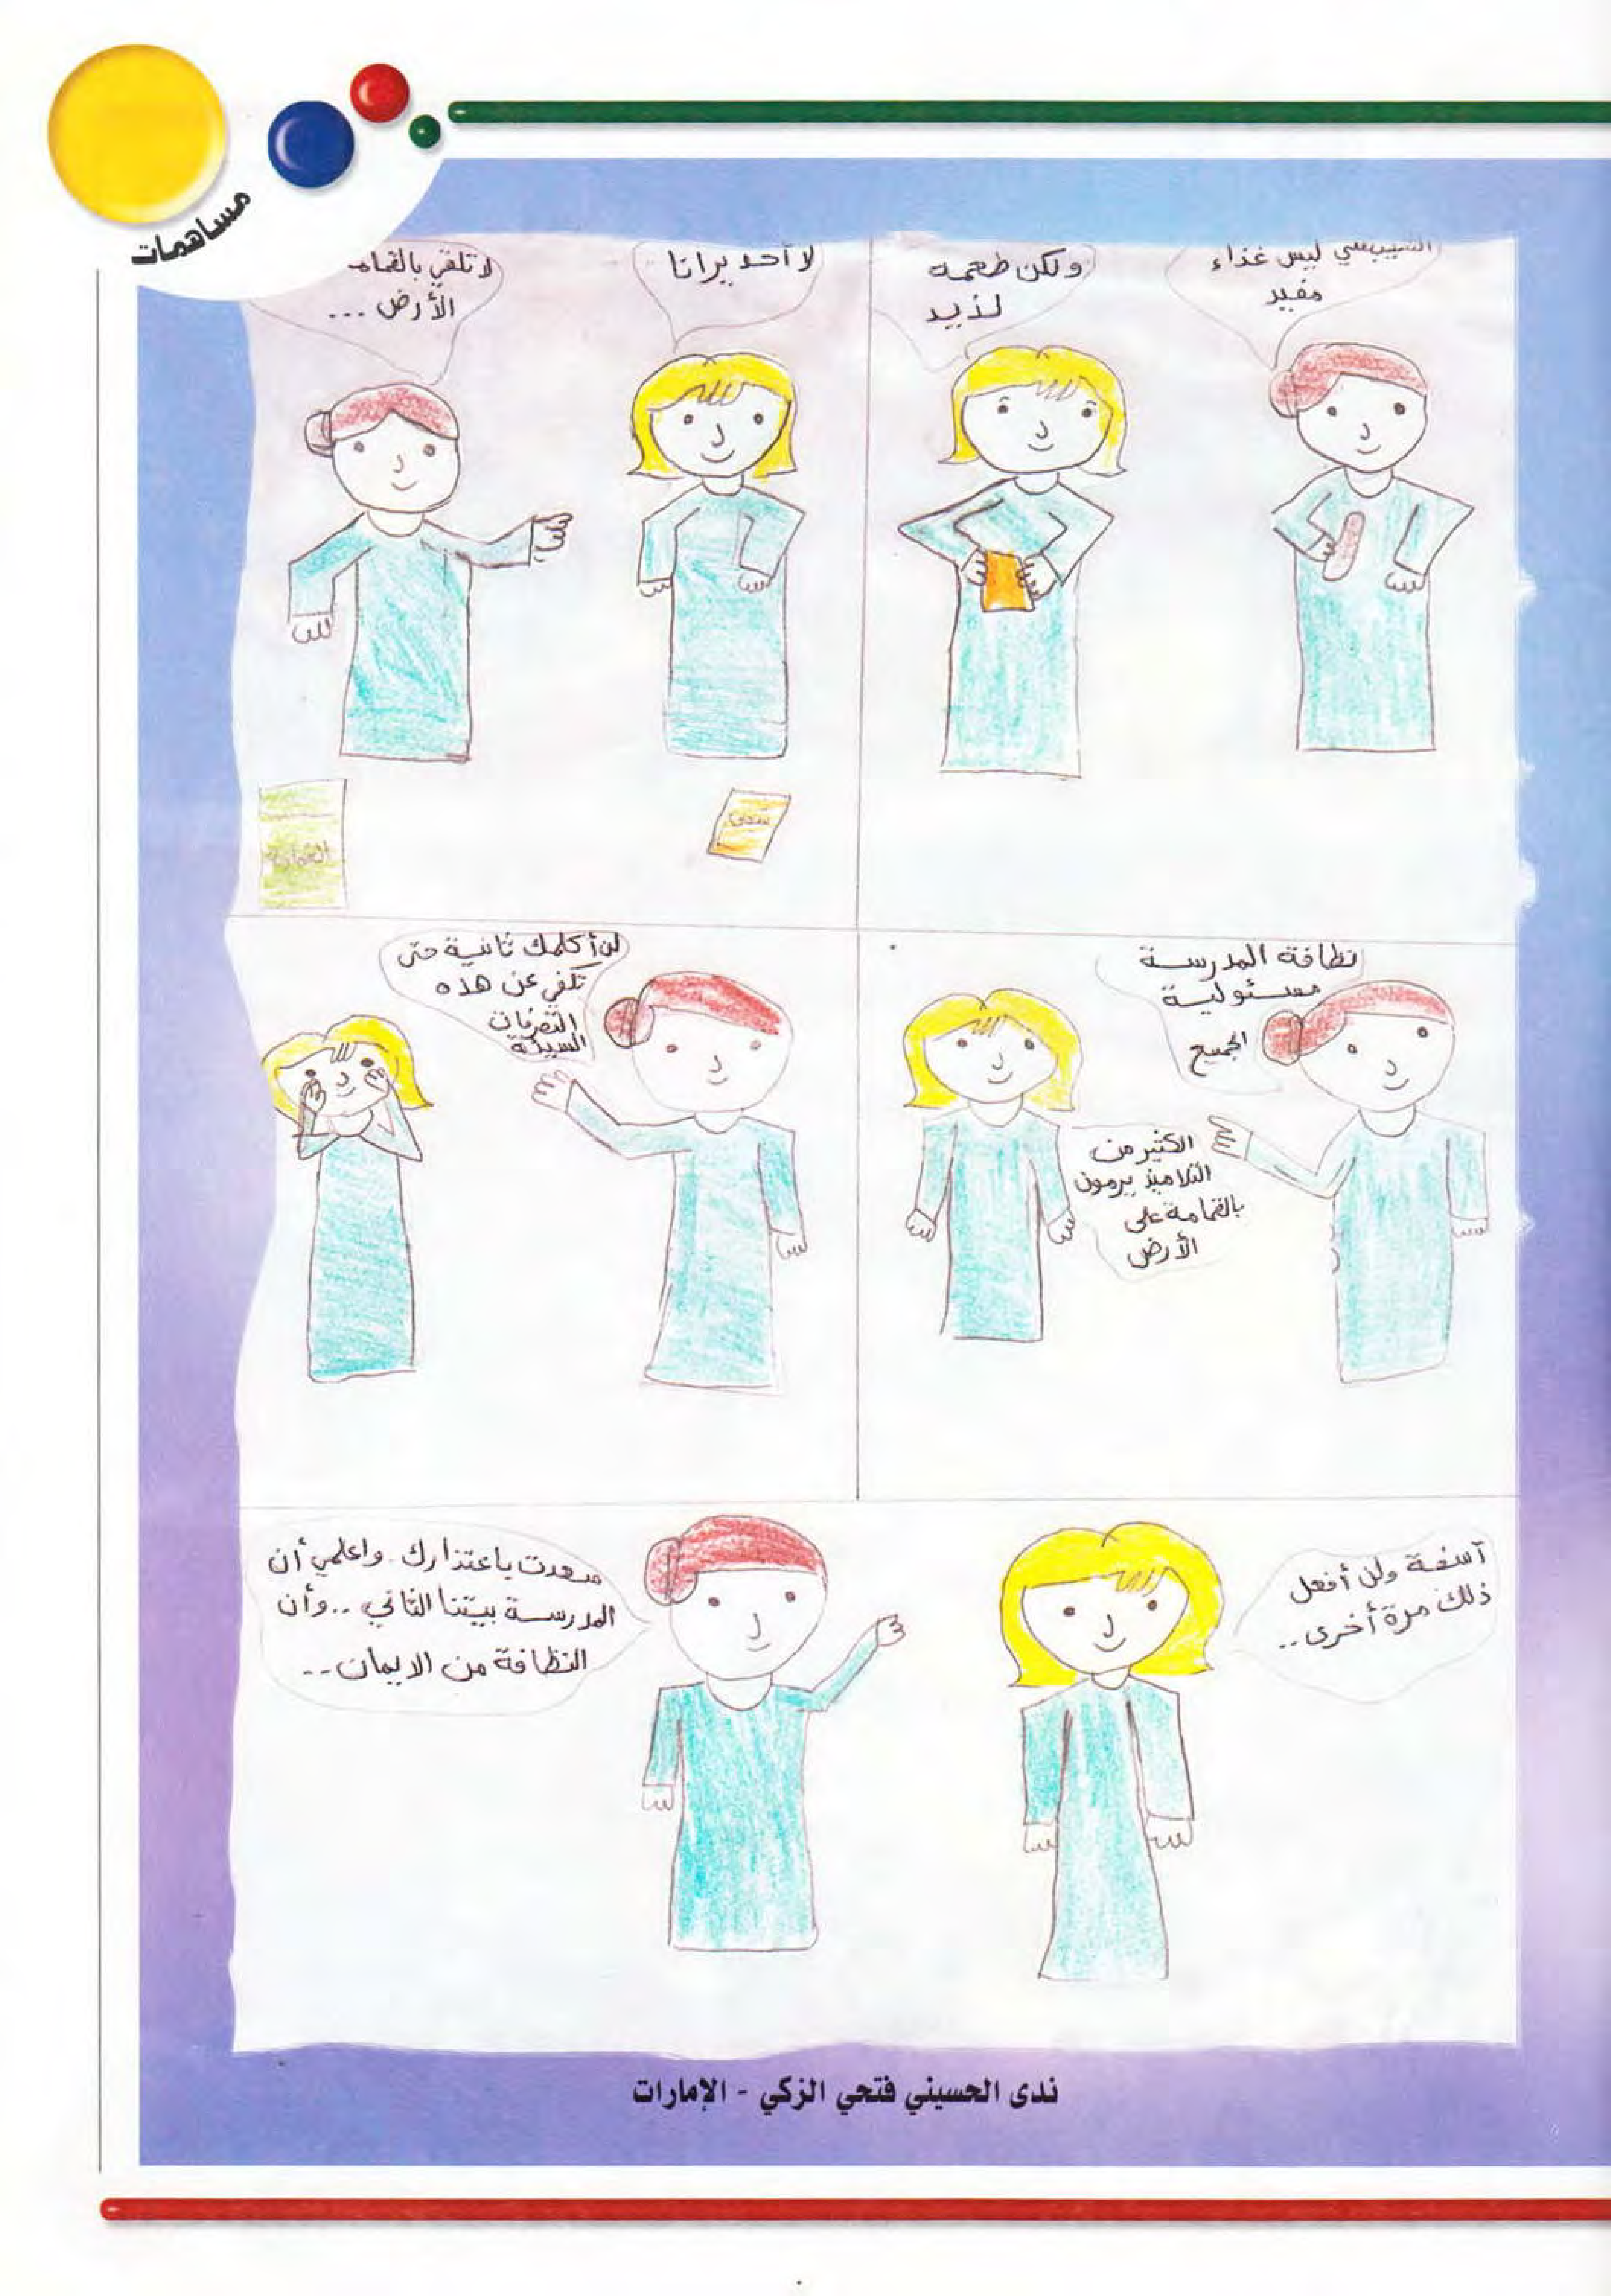 مساهمات
الشيبسي ليس غذاء
مفيد
ولكن طعمه
لذيذ
لا أحد يرانا
لا تلقي بالقمامه
الأرض ...
القمامة
نظافة المدرسة
مسئولية
الجميع
الكثير من
التلاميذ يرمون
بالقمامة على
الأرض
لن أكلمك ثانية حتى
تكفي عن هذه
التصرفات
السيئة
آسفة ولن أفعل
ذلك مرة أخرى..
سعدت باعتذارك. واعلمي أن
المدرسة بيتنا الثاني .. وأن
النظافة من الايمان..
ندى الحسيني فتحي الزكي - الإمارات